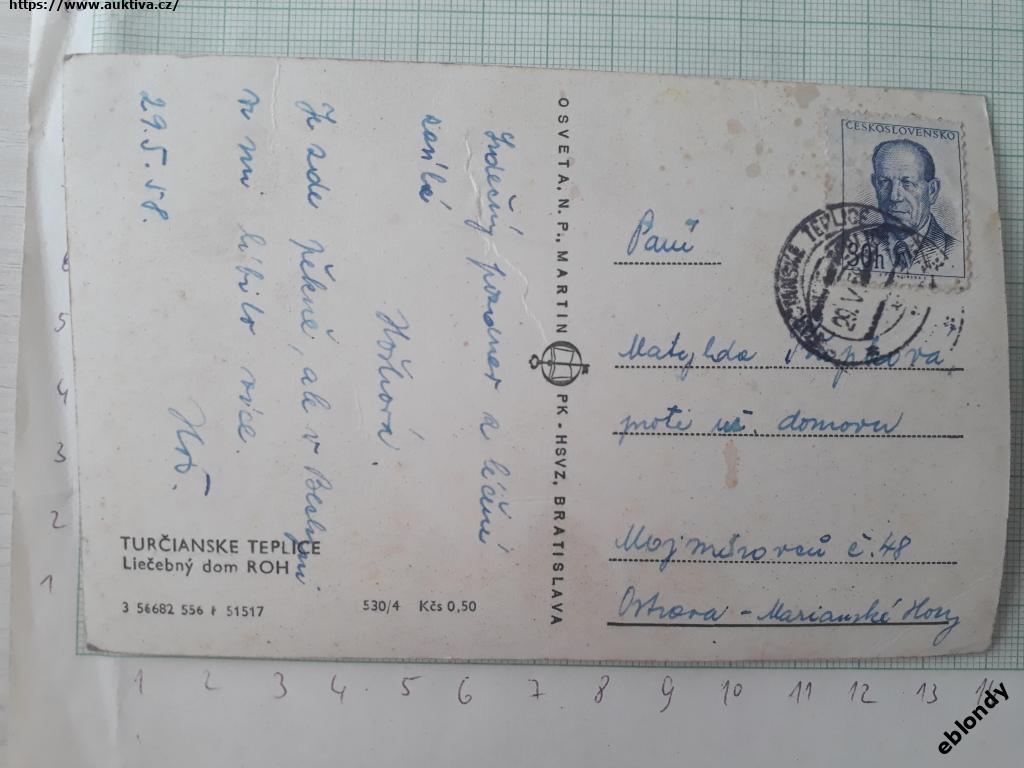 https://www.auktiva.cz/
Srdečný pozdrav z léčení
zasílá
Hořtvorá.
Je zde pěkně, ale v
mi líbilo více.
29.5.58.
TURČIANSKE TEPLICE
Liečebný dom ROH
3 56682 556 F 51517
530/4 Kčs 0,50
OSVETA, N. P., MARTIN PK - HSVZ, BRATISLAVA
ČESKOSLOVENSKO
30h
TURČIANSKE TEPLICE
29.V.
Paní
Matylda
proti domovu
Mojmírovců č. 48
Ostrava - Marianské Hory
1 2 3 4 5 6 7 8 9 10 11 12 13 14
1
2
3
4
5
6
eblondy